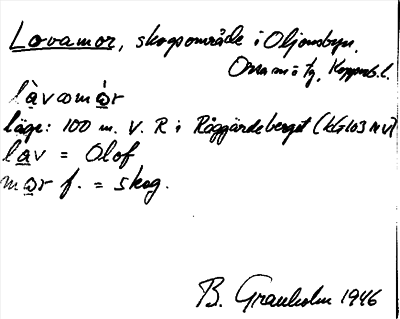 Lovamor, skogsområde i Oljonsbyn,
Orsa m o tg, Kopparb. l.
làvamór
läge: 100 m. V. R i Råggärdeberget (kG103 NV)
låv = Olof
mor f. = skog.
B. Granholm 1946